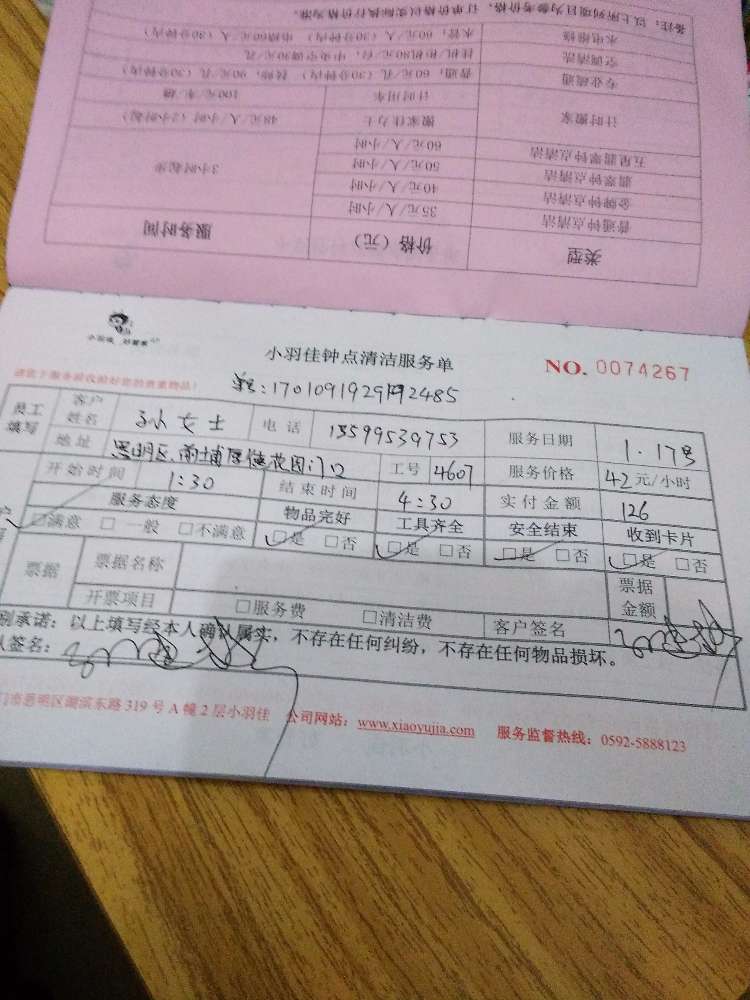 备注：以上所列项目为参考价格，订单价格以实际执行价格为准。
水电维修 水管：60元/人（30分钟内） 电路60元/人（30分钟内）
空调清洗 挂机/柜机80元/台，中央空调30元/孔
专业疏通 普通：60元/孔（30分钟内） 特殊：90元/孔（30分钟内）
计时搬家 计时用车 100元/车/趟
搬家佳力士 48元/人/小时（2小时起）
五星翡翠钟点清洁 60元/人/小时
翡翠钟点清洁 50元/人/小时 3小时起步
金牌钟点清洁 40元/人/小时
普通钟点清洁 35元/人/小时
类型 价格（元） 服务时间
小羽佳 好管家
小羽佳钟点清洁服务单 NO. 0074267
请您于服务前收拾好您的贵重物品！
单号：1701091929192485
员工填写 客户姓名 孙女士 电话 13599539753 服务日期 1.17号
地址 思明区 莆埔厚德花园门口 工号 4607 服务价格 42元/小时
开始时间 1:30 结束时间 4:30 实付金额 126
服务态度 物品完好 工具齐全 安全结束 收到卡片
□满意 □一般 □不满意 □是 □否 □是 □否 □是 □否 □是 □否
票据 票据名称 票据金额
开票项目 □服务费 □清洁费 客户签名
别承诺：以上填写经本人确认属实，不存在任何纠纷，不存在任何物品损坏。
人签名：
门市思明区湖滨东路319号A幢2层小羽佳 公司网站：www.xiaoyujia.com 服务监督热线：0592-5888123